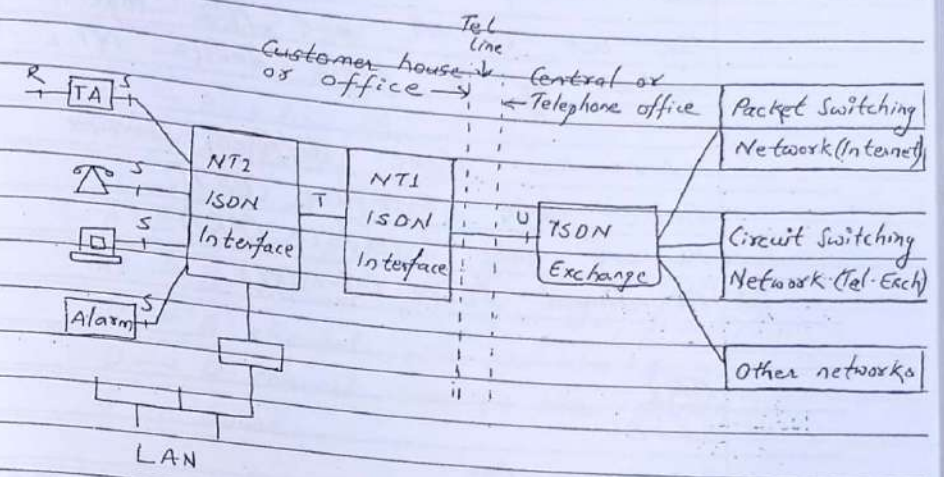 Tel
line
Customer house
or office →
Central or
← Telephone office
R
TA
S
S
S
S
Alarm
NT2
ISDN
Interface
T
NT1
ISDN
Interface
U
ISDN
Exchange
Packet Switching
Network (Internet)
Circuit Switching
Network (Tel. Exch)
Other networks
LAN